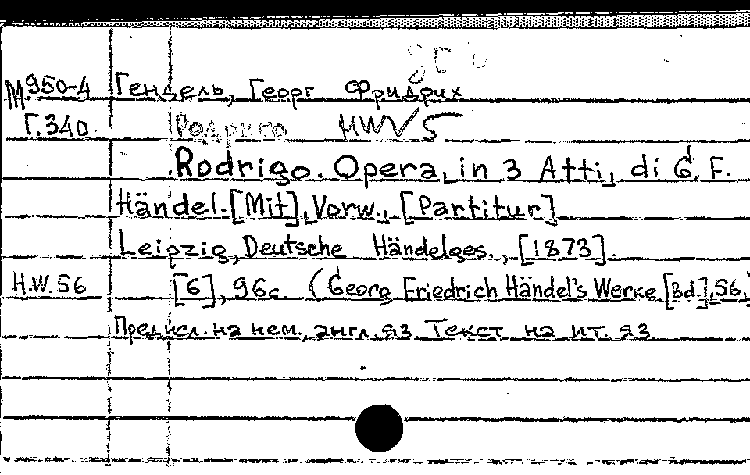 М950-4 Гендель, Георг Фридрих
Г.340 Родриго HWV 5
Rodrigo. Opera in 3 Atti di G. F.
Händel. [Mit] Vorw., [Partitur]
Leipzig, Deutsche Händelges., [1873].
H.W.56 [6], 96 с. (Georg Friedrich Händel's Werke. [Bd.], 56.
Предисл. на нем., англ. яз. Текст на ит. яз